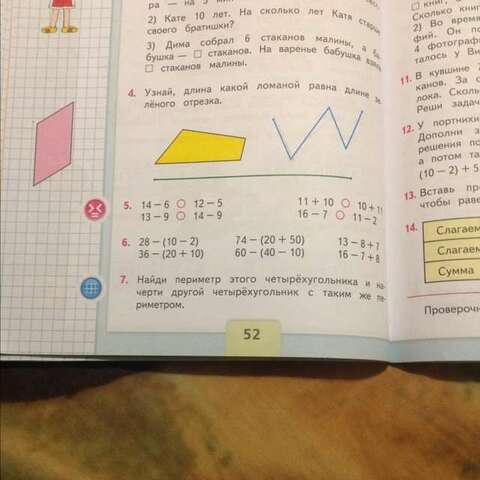 ра — на 5 мин
2) Кате 10 лет. На сколько лет Катя старше
своего братишки?
3) Дима собрал 6 стаканов малины, а ба-
бушка — □ стаканов. На варенье бабушка взяла
□ стаканов малины.
4. Узнай, длина какой ломаной равна длине зе-
лёного отрезка.
5. 14 − 6 ○ 12 − 5 11 + 10 ○ 10 + 11
13 − 9 ○ 14 − 9 16 − 7 ○ 11 − 2
6. 28 − (10 − 2) 74 − (20 + 50) 13 − 8 + 7
36 − (20 + 10) 60 − (40 − 10) 16 − 7 + 8
7. Найди периметр этого четырёхугольника и на-
черти другой четырёхугольник с таким же пе-
риметром.
52
□ книг,
Сколько книг
2) Во время
фий. Он по
4 фотограф
талось у Ви
11. В кувшине
канов. За
лока. Сколь
Реши задач
12. У портнихи
Дополни з
решения по
а потом та
(10 − 2) + 5
13. Вставь пр
чтобы раве
14.
Слагаем
Слагаем
Сумма
Проверочн